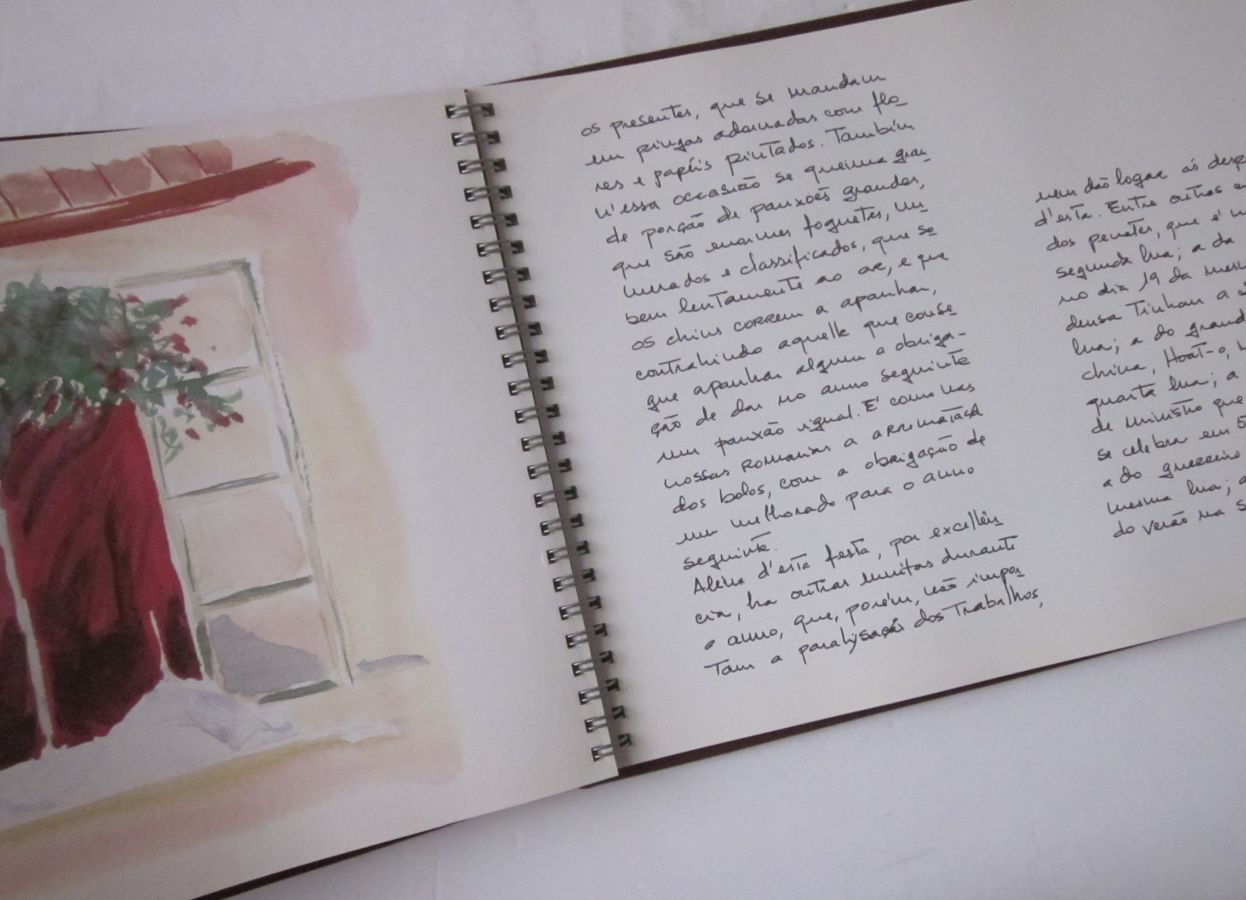 os presentes, que se mandam
em pingas adornadas com flo-
res e papéis pintados. Também
n'essa occasião se queima gran
de porção de panxões grandes,
que são enormes foguetes, nu
merados e classificados, que so
bem lentamente ao ar, e que
os chins correm a apanhar,
contrahindo aquelle que conse
gue apanhar algum a obriga-
ção de dar no anno seguinte
um panxão igual. E' como nas
nossas romarias a arrematação
dos bolos, com a obrigação de
um melhorado para o anno
seguinte.
Além d'esta festa, por excellên
cia, ha outras muitas durante
o anno, que, porém, não impor
tam a paralysação dos trabalhos,
nem dão logar ás desp
d'esta. Entre outras
dos penates, que é
segunda lua; a da
no dia 19 da mesm
deusa Tinhan a
lua; a do grand
china, Hoat-o,
quarta lua; a
de ministro que
se celebra em 5
a do guerreiro
mesma lua; a
do verão na s